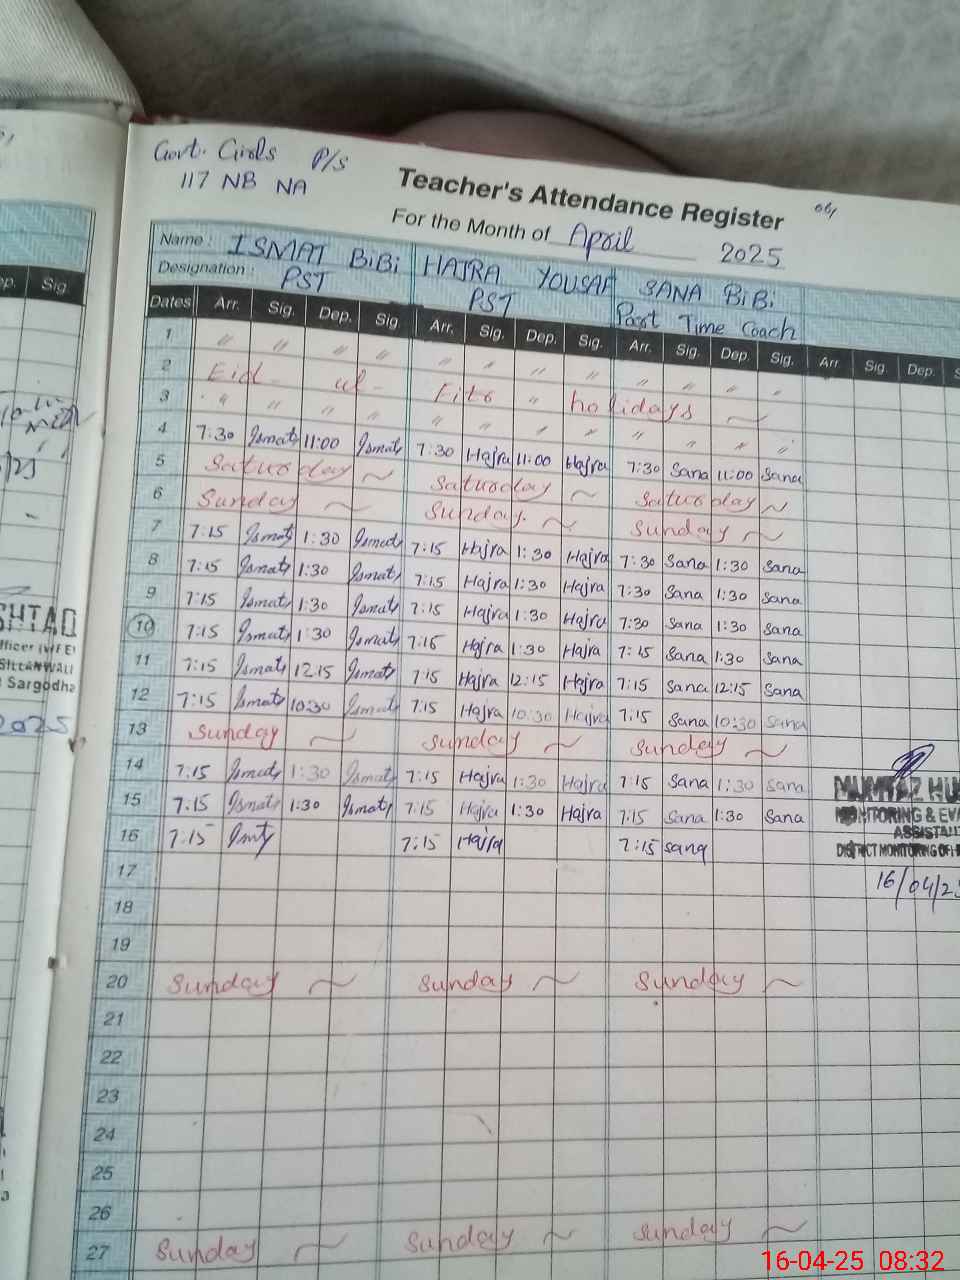 Govt. Girls P/S
117 NB NA
Teacher's Attendance Register
For the Month of April 2025
Name: ISMAT BiBi HAJRA YOUSAF SANA BiBi
Designation: PST PST Part Time Coach
Dates Arr. Sig. Dep. Sig Arr. Sig. Dep. Sig. Arr. Sig. Dep. Sig. Arr. Sig. Dep.
1 " " " " " " " " " " " "
2 Eid ul Fitr holidays
3 " " " " " " " " " " "
4 7:30 Ismat 11:00 Ismat 7:30 Hajra 11:00 Hajra 7:30 Sana 11:00 Sana
5 Saturday ~ Saturday ~ Saturday ~
6 Sunday ~ Sunday. ~ Sunday ~
7 7:15 Ismat 1:30 Ismat 7:15 Hajra 1:30 Hajra 7:30 Sana 1:30 Sana
8 7:15 Ismat 1:30 Ismat 7:15 Hajra 1:30 Hajra 7:30 Sana 1:30 Sana
9 7:15 Ismat 1:30 Ismat 7:15 Hajra 1:30 Hajra 7:30 Sana 1:30 Sana
10 7:15 Ismat 1:30 Ismat 7:15 Hajra 1:30 Hajra 7:15 Sana 1:30 Sana
11 7:15 Ismat 12:15 Ismat 7:15 Hajra 12:15 Hajra 7:15 Sana 12:15 Sana
12 7:15 Ismat 10:30 Ismat 7:15 Hajra 10:30 Hajra 7:15 Sana 10:30 Sana
13 Sunday ~ Sunday ~ Sunday ~
14 7:15 Ismat 1:30 Ismat 7:15 Hajra 1:30 Hajra 7:15 Sana 1:30 Sana
15 7:15 Ismat 1:30 Ismat 7:15 Hajra 1:30 Hajra 7:15 Sana 1:30 Sana
16 7:15 7:15 Hajra 7:15 Sana
17
18
19
20 Sunday ~ Sunday ~ Sunday ~
21
22
23
24
25
26
27 Sunday ~ Sunday ~ Sunday ~
MUMTAZ HU
MONITORING & EVA
ASSISTA
DISTRICT MONITORING OF
16/04/2
Sig
SHTAQ
Sargodha
2025
16-04-25 08:32